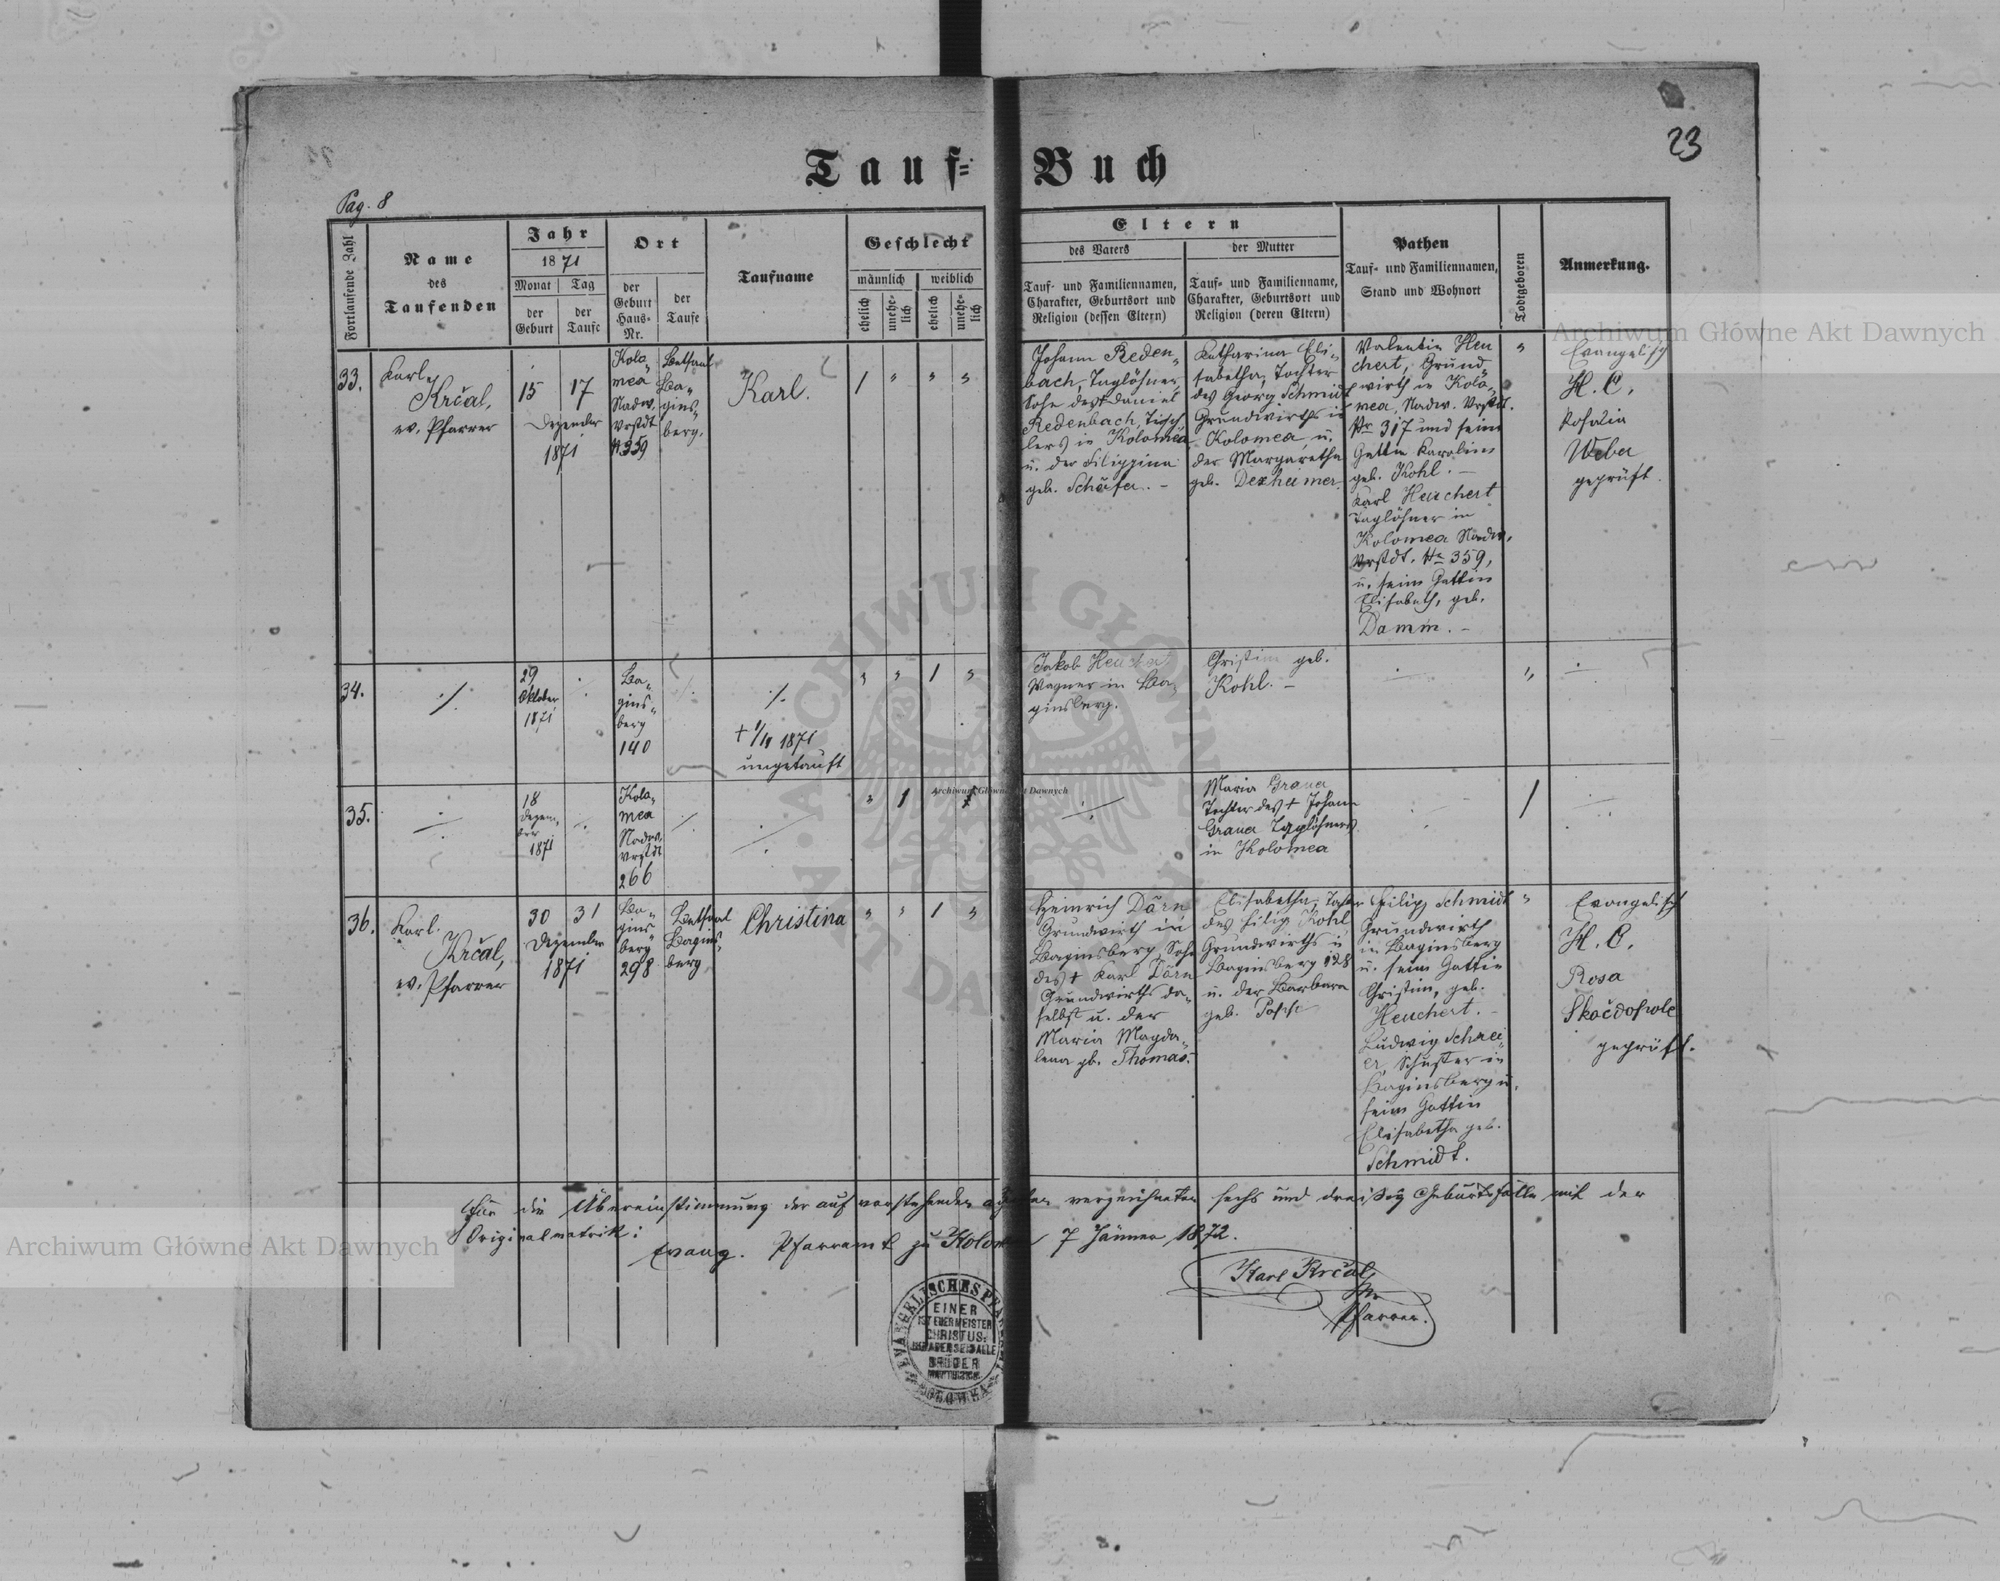 23
Tauf= Buch
Pag. 8
Fortlaufende Zahl
Name
des
Taufenden
Jahr
1871
Monat Tag
der Geburt
der Taufe
Ort
der
Geburt
Haus=
Nr.
der
Taufe
Taufname
Geschlecht
männlich weiblich
ehelich
unehe=
lich
ehelich
unehe=
lich
Eltern
des Vaters
Tauf- und Familiennamen,
Charakter, Geburtsort und
Religion (dessen Eltern)
der Mutter
Tauf- und Familienname,
Charakter, Geburtsort und
Religion (deren Eltern)
Pathen
Tauf- und Familiennamen,
Stand und Wohnort
Todtgeboren
Anmerkung.
33.
Karl
Krčal,
ev. Pfarrer
15 17
Dezember
1871
Kolo„
mea
Nadw.
Vrstdt
N 359
Bethaus
Ba„
gins„
berg.
Karl.
1 " " "
Johann Reden„
bach, Taglöhner,
Sohn des + Daniel
Redenbach, Tisch
lers in Kolomea
u. der Filippina
geb. Schäfer. –
Katharina Eli„
sabetha, Tochter
des Georg Schmidt
Grundwirths in
Kolomea u.
der Margaretha
geb. Dexheimer.
Valentin Heu
chert, Grund„
wirth in Kolo„
mea, Nadw. Vrstdt.
Nr 317 und seine
Gattin Karolina
geb. Kohl. –
Karl Heuchert
Taglöhner in
Kolomea Nadw.
Vrstdt. Nr 359,
u. seine Gattin
Elisabeth, geb.
Damm. –
"
Evangelisch
H. C.
Rosalia
Weber
geprüft.
34.
./.
29
Oktober
1871
Ba„
gins„
berg
140
./.
+ 1/11 1871
ungetauft
" " 1 "
Jakob Heuchert
Wagner in Ba„
ginsberg.
Christina geb.
Kohl. –
"
35.
18
Dezem„
ber
1871
Kolo„
mea
Nadw.
Vrstdt
266
" 1
Maria Grauer
Tochter des + Johann
Grauer Taglöhners
in Kolomea
1
36.
Karl.
Krčal,
ev. Pfarrer
30 31
Dezember
1871
Ba„
gins„
berg
298
Bethsaal
Bagins„
berg
Christina
" " 1 "
Heinrich Dörn
Grundwirth in
Baginsberg, Sohn
des + Karl Dörn
Grundwirths da„
selbst u. der
Maria Magda„
lena gb. Thomas.
Elisabetha, Tochter
des Filip Kohl
Grundwirths in
Baginsberg 128
u. der Barbara
geb.
Filip Schmidt
Grundwirth
in Baginsberg
u. seine Gattin
Christina, geb.
Heuchert. –
Ludwig Schnei„
er, Schuster in
Baginsberg u.
seine Gattin
Elisabetha geb.
Schmidt.
"
Evangelisch
H. C.
Rosa
Skočdopole
geprüft.
Für die Übereinstimmung der auf vorstehenden verzeichneten sechs und dreißig Geburtsfälle mit der
Originalmatrik:
Evang. Pfarramt zu Kolomea 7 Jänner 1872.
Karl Krčal
Pfarrer.
EVANGELISCHES
EINER
IST EUER MEISTER
CHRISTUS:
IHR ABER SEID ALLE
BRÜDER
KOLOMEA
Archiwum Główne Akt Dawnych
Archiwum Główne Akt Dawnych
Archiwum Główne Akt Dawnych
ARCHIWUM GŁÓWNE AKT DAWNYCH